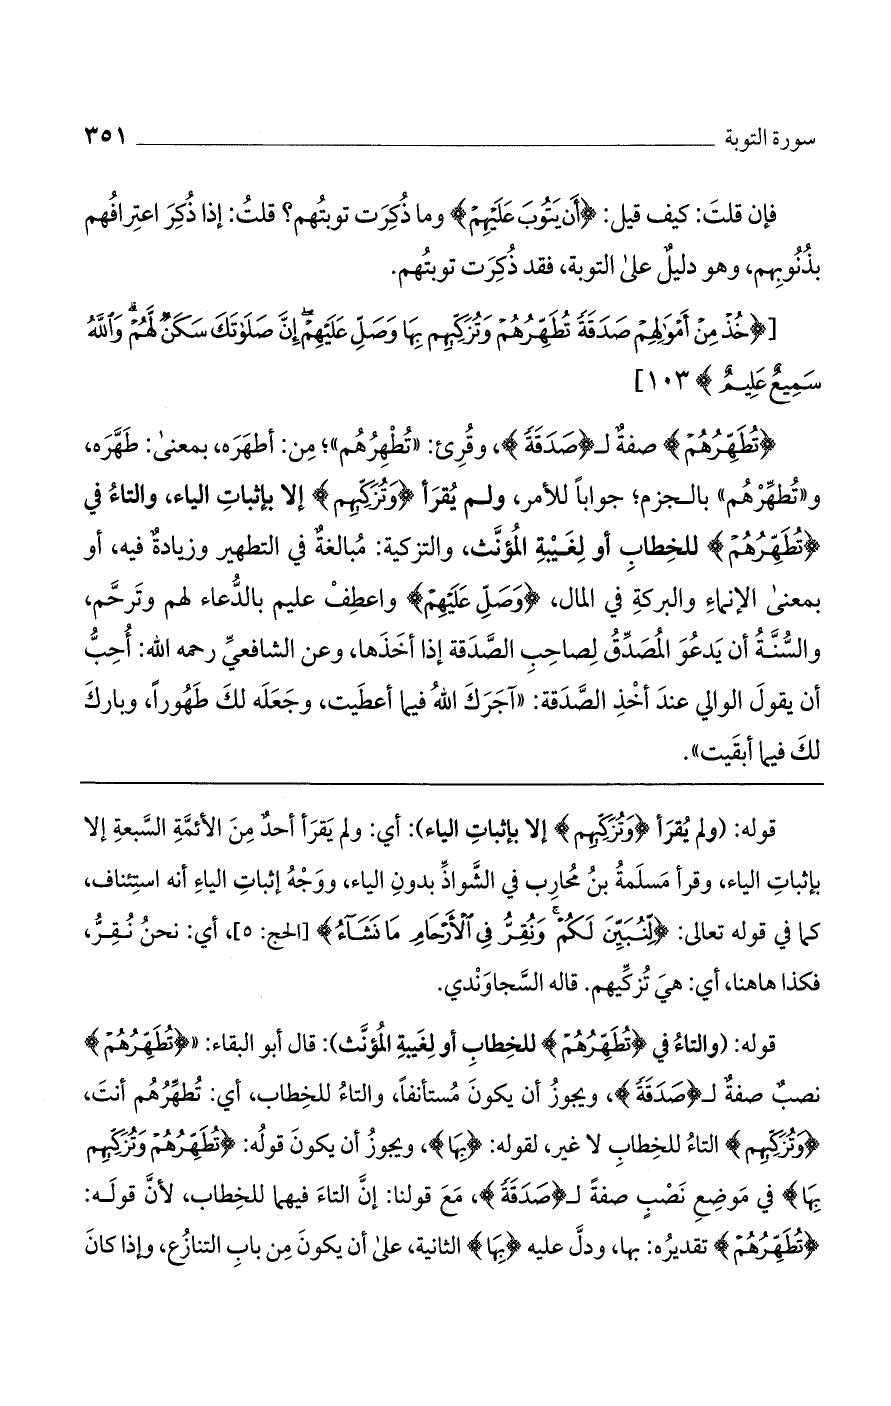 سورة التوبة ٣٥١
فإن قلتَ: كيف قيل: ﴿أَن يَتُوبَ عَلَيْهِمْ﴾ وما ذُكِرَت توبتُهم؟ قلتُ: إذا ذُكِرَ اعتِرافُهم
بذُنُوبِهم، وهو دليلٌ على التوبة، فقد ذُكِرَت توبتُهم.
[﴿خُذْ مِنْ أَمْوَٰلِهِمْ صَدَقَةً تُطَهِّرُهُمْ وَتُزَكِّيهِم بِهَا وَصَلِّ عَلَيْهِمْ ۖ إِنَّ صَلَوٰتَكَ سَكَنٌ لَّهُمْ ۗ وَٱللَّهُ
سَمِيعٌ عَلِيمٌ﴾ ١٠٣]
﴿تُطَهِّرُهُمْ﴾ صفةٌ لـ﴿صَدَقَةً﴾، وقُرِئ: «تُطْهِرُهُم»؛ مِن: أطهَرَه، بمعنىٰ: طَهَّرَه،
و«تُطهِّرْهُم» بالـجزم؛ جواباً للأمر، ولـم يُقرَأ ﴿وَتُزَكِّيهِم﴾ إلا بإثباتِ الياء، والتاءُ في
﴿تُطَهِّرُهُمْ﴾ للخِطابِ أو لِغَـيْبةِ المُؤنَّث، والتزكية: مُبالغةٌ في التطهير وزيادةٌ فيه، أو
بمعنىٰ الإنماءِ والبركةِ في المال، ﴿وَصَلِّ عَلَيْهِمْ﴾ واعطِفْ عليم بالدُّعاء لهم وتَرحَّم،
والسُّنَّةُ أن يَدعُوَ المُصَدِّقُ لِصاحِبِ الصَّدَقة إذا أخَذَها، وعن الشافعيِّ رحمه الله: أُحِبُّ
أن يقولَ الوالي عندَ أخْذِ الصَّدَقة: «آجَرَكَ اللهُ فيما أعطَيت، وجَعَلَه لكَ طَهُوراً، وبارَكَ
لكَ فيما أبقَيت».
قوله: (ولم يُقرَأ ﴿وَتُزَكِّيهِم﴾ إلا بإثباتِ الياء): أي: ولم يَقرَأ أحدٌ مِنَ الأئمَّةِ السَّبعةِ إلا
بإثباتِ الياء، وقرأ مَسلَمةُ بنُ مُحارِب في الشَّواذِّ بدونِ الياء، ووَجْهُ إثباتِ الياءِ أنه استِئناف،
كما في قوله تعالى: ﴿لِّنُبَيِّنَ لَكُمْ ۚ وَنُقِرُّ فِي ٱلْأَرْحَامِ مَا نَشَآءُ﴾ [الحج: ٥]، أي: نحنُ نُـقِـرُّ،
فكذا هاهنا، أي: هيَ تُزكِّيهم. قاله السَّجاوَنْدي.
قوله: (والتاءُ في ﴿تُطَهِّرُهُمْ﴾ للخِطابِ أو لِغَيبةِ المُؤنَّث): قال أبو البقاء: «﴿تُطَهِّرُهُمْ﴾
نصبٌ صفةٌ لـ﴿صَدَقَةً﴾، ويجوزُ أن يكونَ مُستأنفاً، والتاءُ للخِطاب، أي: تُطهِّرُهُم أنتَ،
﴿وَتُزَكِّيهِم﴾ التاءُ للخِطابِ لا غير، لقوله: ﴿بِهَا﴾، ويجوزُ أن يكونَ قولُه: ﴿تُطَهِّرُهُمْ وَتُزَكِّيهِم
بِهَا﴾ في مَوضِعِ نَصْبٍ صفةً لـ﴿صَدَقَةً﴾، مَعَ قولنا: إنَّ التاءَ فيهما للخِطاب، لأنَّ قولَـه:
﴿تُطَهِّرُهُمْ﴾ تقديرُه: بها، ودلَّ عليه ﴿بِهَا﴾ الثانية، علىٰ أن يكونَ مِن بابِ التنازُع، وإذا كانَ